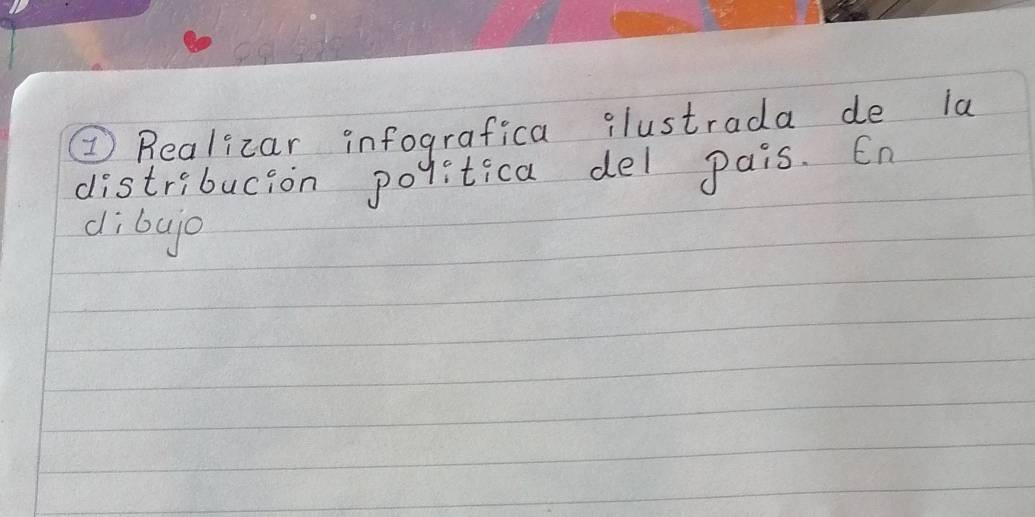 ① Realizar infografica ilustrada de la
distribución política del pais. En
dibujo